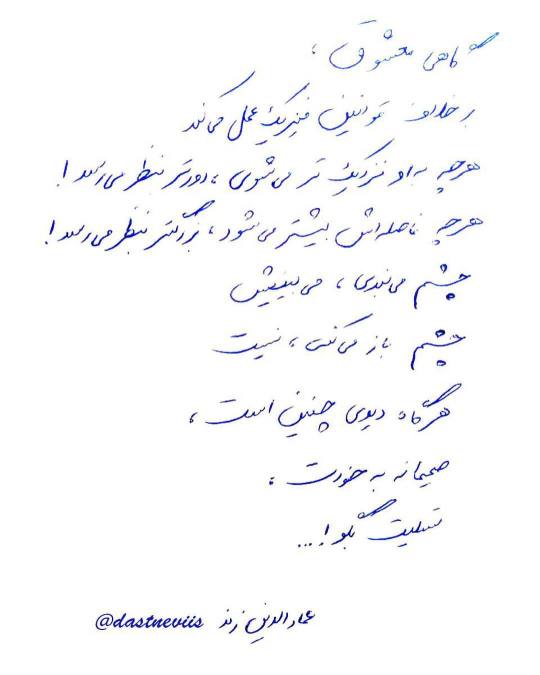 گاهی معشوق،
بر خلاف قوانین فیزیک عمل می‌کند
هرچه به او نزدیک تر می‌شوی، دورتر بنظر می‌رسد!
هرچه فاصله‌اش بیشتر می‌شود، بزرگتر بنظر می‌رسد!
چشم می‌بندی، می‌بینیش
چشم باز می‌کنی، نیست
هرگاه دیدی چنین است،
صمیمانه به خودت،
تسلیت بگو!...
عمادالدین زند @dastneviis